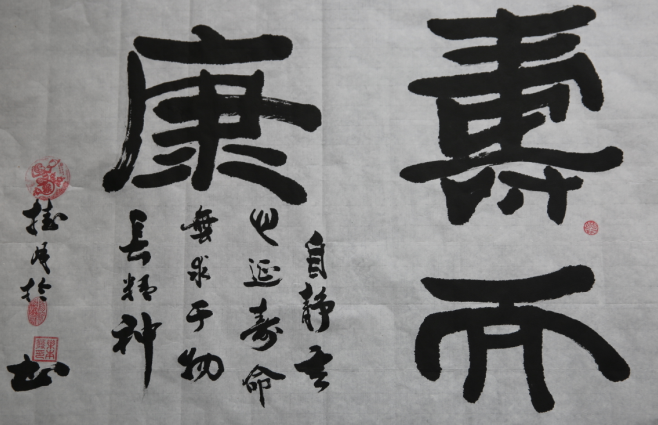 壽而
康
自静其
心延寿命
無求于物
长精神
於
书